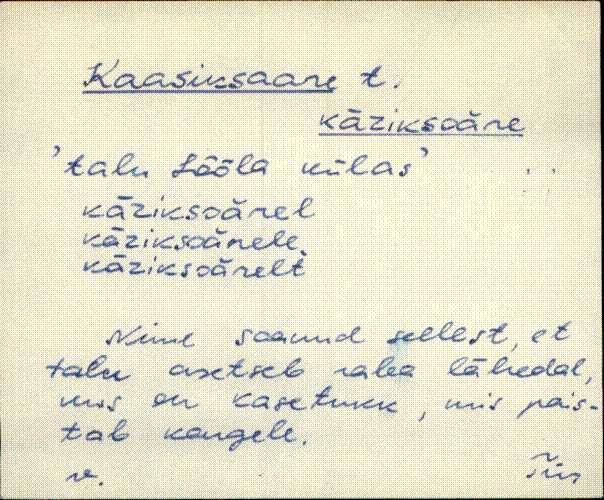 Kaasiksaare t.
käziksoäre
'talu Lööla külas'
käziksoärel
käziksoärele
käziksoärelt
Nime saanud sellest, et
talu asetseb raba lähedal,
mis on kasetukk, mis pais-
tab kaugele.
v.